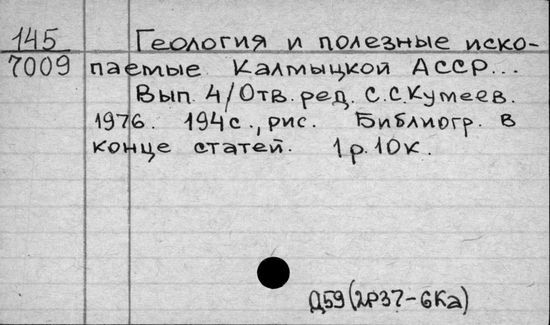 145 Геология и полезные иско-
7009 паемые Калмыцкой АССР...
Вып. 4/Отв. ред. С.С.Кумеев.
1976. 194с., рис. Библиогр. в
конце статей. 1р.10к.
Д59(2Р37-6Ка)